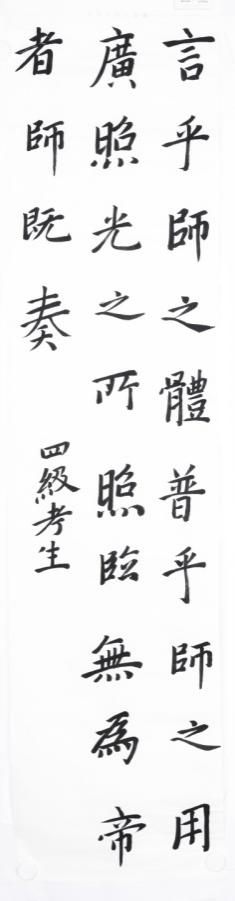 言乎師之體普乎師之用
廣照光之所照臨無為帝
者師既奏
四級考生